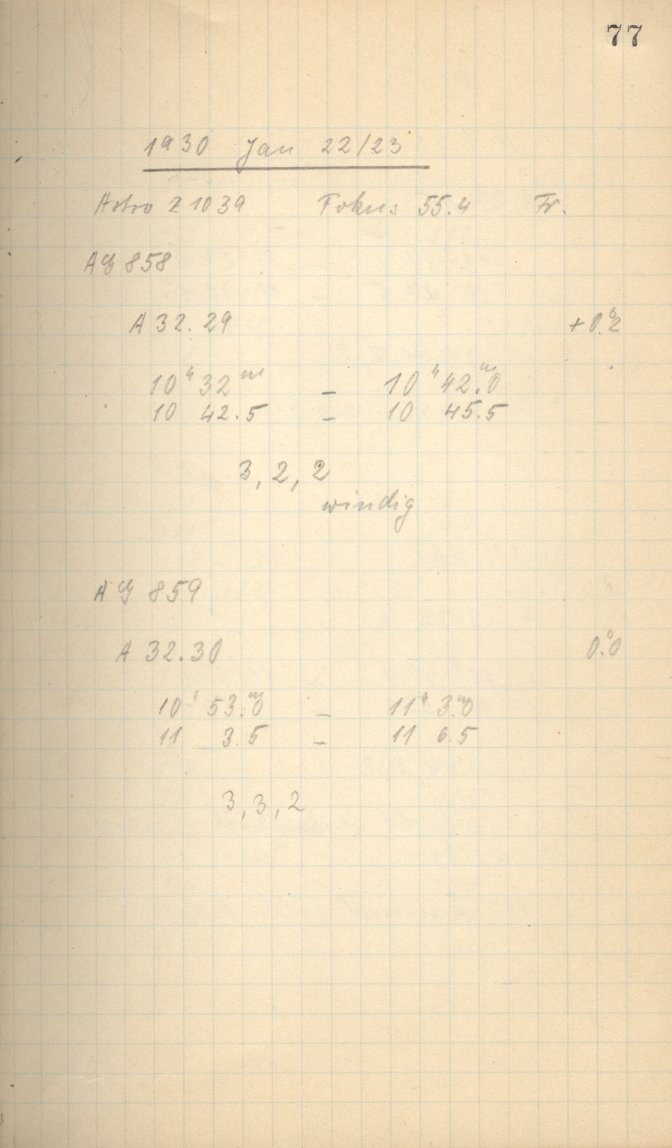 77
1930 Jan 22/23
Astro Z 1039 Fokus 55.4 Fr.
AG 858
A 32.29 +0.2
10h 32m – 10h 42.m0
10 42.5 – 10 45.5
3, 2, 2
windig
AG 859
A 32.30 0.0
10h 53.m0 – 11h 3.m0
11 3.5 – 11 6.5
3, 3, 2